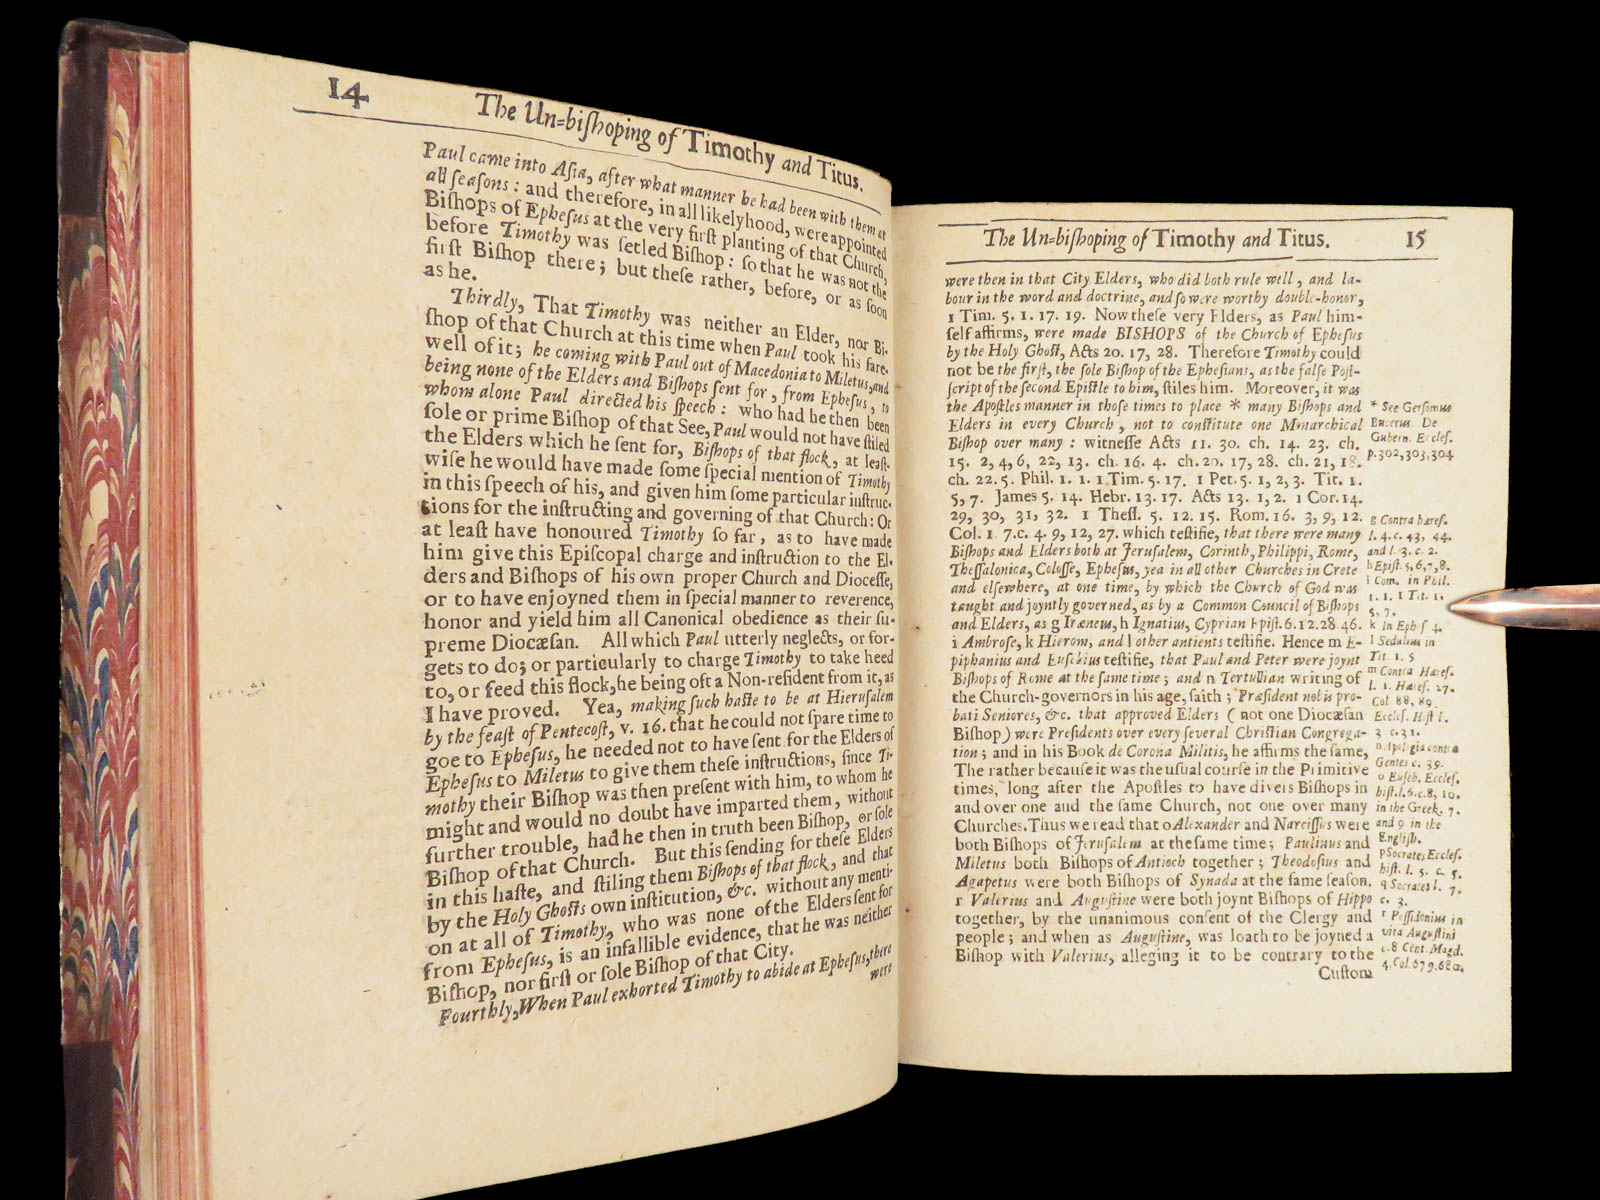 14
The Un=biſhoping of Timothy and Titus.
Paul came into Aſia, after what manner he had been with them at
all ſeaſons: and therefore, in all likelyhood, were appointed
Biſhops of Epheſus at the very firſt planting of that Church,
before Timothy was ſetled Biſhop: ſo that he was not the
firſt Biſhop there; but theſe rather, before, or as ſoon
as he.
Thirdly, That Timothy was neither an Elder, nor Bi-
ſhop of that Church at this time when Paul took his fare-
well of it; he coming with Paul out of Macedonia to Miletus, and
being none of the Elders and Biſhops ſent for, from Epheſus, to
whom alone Paul directed his ſpeech: who had he then been
ſole or prime Biſhop of that See, Paul would not have ſtiled
the Elders which he ſent for, Biſhops of that flock, at leaſt-
wiſe he would have made ſome ſpecial mention of Timothy
in this ſpeech of his, and given him ſome particular inſtruc-
tions for the inſtructing and governing of that Church: Or
at leaſt have honoured Timothy ſo far, as to have made
him give this Epiſcopal charge and inſtruction to the El-
ders and Biſhops of his own proper Church and Dioceſſe,
or to have enjoyned them in ſpecial manner to reverence,
honor and yield him all Canonical obedience as their ſu-
preme Diocæſan. All which Paul utterly neglects, or for-
gets to do; or particularly to charge Timothy to take heed
to, or feed this flock, he being oft a Non-reſident from it, as
I have proved. Yea, making ſuch haſte to be at Hieruſalem
by the feaſt of Pentecoſt, v. 16. that he could not ſpare time to
goe to Epheſus, he needed not to have ſent for the Elders of
Epheſus to Miletus to give them theſe inſtructions, ſince Ti-
mothy their Biſhop was then preſent with him, to whom he
might and would no doubt have imparted them, without
further trouble, had he then in truth been Biſhop, or ſole
Biſhop of that Church. But this ſending for theſe Elders
in this haſte, and ſtiling them Biſhops of that flock, and that
by the Holy Ghoſts own inſtitution, &c. without any menti-
on at all of Timothy, who was none of the Elders ſent for
from Epheſus, is an infallible evidence, that he was neither
Biſhop, nor firſt or ſole Biſhop of that City.
Fourthly, When Paul exhorted Timothy to abide at Epheſus, there
were
The Un=biſhoping of Timothy and Titus. 15
were then in that City Elders, who did both rule well, and la-
bour in the word and doctrine, and ſo were worthy double-honor,
1 Tim. 5. 1. 17. 19. Now theſe very Elders, as Paul him-
ſelf affirms, were made BISHOPS of the Church of Epheſus
by the Holy Ghoſt, Acts 20. 17, 28. Therefore Timothy could
not be the firſt, the ſole Biſhop of the Epheſians, as the falſe Poſt-
ſcript of the ſecond Epiſtle to him, ſtiles him. Moreover, it was
the Apoſtles manner in thoſe times to place * many Biſhops and
Elders in every Church, not to conſtitute one Monarchical
Biſhop over many: witneſſe Acts 11. 30. ch. 14. 23. ch.
15. 2, 4, 6, 22, 13. ch. 16. 4. ch. 20. 17, 28. ch. 21, 18.
ch. 22. 5. Phil. 1. 1. 1 Tim. 5. 17. 1 Pet. 5. 1, 2, 3. Tit. 1.
5, 7. James 5. 14. Hebr. 13. 17. Acts 13. 1, 2. 1 Cor. 14.
29, 30, 31, 32. 1 Theſſ. 5. 12. 15. Rom. 16. 3, 9, 12.
Col. 1. 7. c. 4. 9, 12, 27. which teſtifie, that there were many
Biſhops and Elders both at Jeruſalem, Corinth, Philippi, Rome,
Theſſalonica, Coloſſe, Epheſus, yea in all other Churches in Crete
and elſewhere, at one time, by which the Church of God was
taught and joyntly governed, as by a Common Council of Biſhops
and Elders, as g Iræneus, h Ignatius, Cyprian Epiſt. 6. 12. 28. 46.
i Ambroſe, k Hierom, and l other antients teſtifie. Hence m E-
piphanius and Euſebius teſtifie, that Paul and Peter were joynt
Biſhops of Rome at the ſame time; and n Tertullian writing of
the Church-governors in his age, ſaith; Præſident nobis pro-
bati Seniores, &c. that approved Elders (not one Diocæſan
Biſhop) were Preſidents over every ſeveral Chriſtian Congrega-
tion; and in his Book de Corona Militis, he affirms the ſame,
The rather becauſe it was the uſual courſe in the Primitive
times, long after the Apoſtles to have divers Biſhops in
and over one and the ſame Church, not one over many
Churches. Thus we read that o Alexander and Narciſſus were
both Biſhops of Jeruſalem at the ſame time; Paulinus and
Miletus both Biſhops of Antioch together; Theodoſius and
Agapetus were both Biſhops of Synada at the ſame ſeaſon.
r Valerius and Auguſtine were both joynt Biſhops of Hippo
together, by the unanimous conſent of the Clergy and
people; and when as Auguſtine, was loath to be joyned a
Biſhop with Valerius, alleging it to be contrary to the
Cuſtom
* See Gerſomus
Bucerus De
Gubern. Eccleſ.
p. 302, 303, 304
g Contra hæreſ.
l. 4. c. 43, 44.
and l. 3. c. 2.
h Epiſt. 5, 6, 7, 8.
i Com. in Phil.
1. 1. 1 Tit. 1.
5, 7.
k In Epheſ 4.
l Sedulius in
Tit. 1. 5
m Contra Hæreſ.
l. 1. Hæreſ. 27.
Col 88, 89.
Eccleſ. Hiſt l.
3 c. 31.
n Apologia contra
Gentes c. 39.
o Euſeb. Eccleſ.
hiſt. l. 6. c. 8, 10.
in the Greek, 7.
and 9 in the
Engliſh.
p Socrates, Eccleſ.
hiſt. l. 5. c. 5.
q Socrates l. 7.
c. 3.
r Poſſidonius in
vita Auguſtini
c. 8 Cent. Magd.
4. Col. 679. 680.